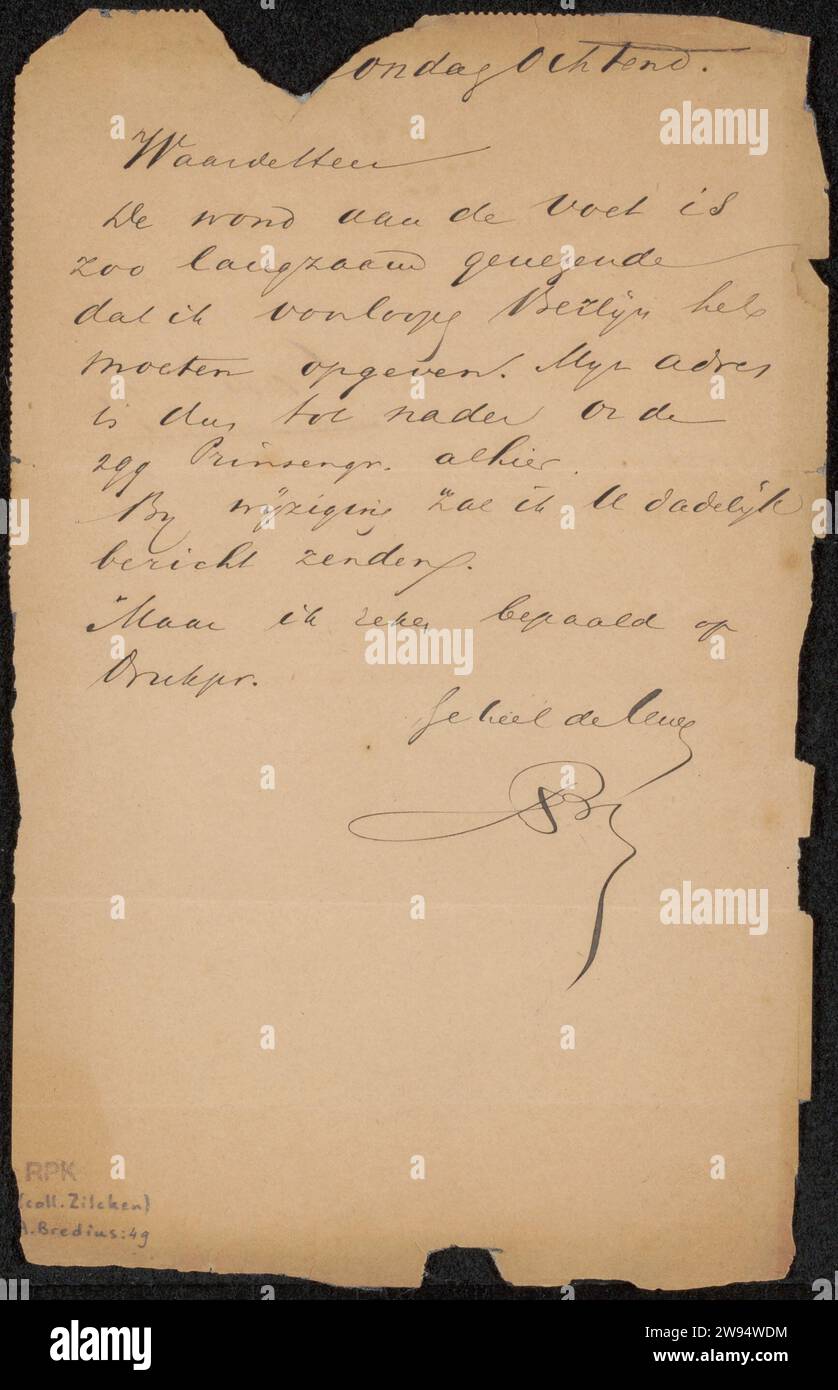 ondag Ochtend.
Waarde Heer
De wond aan de voet is
zoo langzaam genezende
dat ik voorloopig Berlijn heb
moeten opgeven. Mijn adres
is dus tot nader orde
299 Prinsengr. alhier.
By wijziging zal ik U dadelijk
bericht zenden.
Maar ik reken bepaald op
Drukpr.
Geheel de Uwe
RPK
(coll. Zilcken)
A. Bredius: 49
alamy
Image ID: 2W94WDM
www.alamy.com